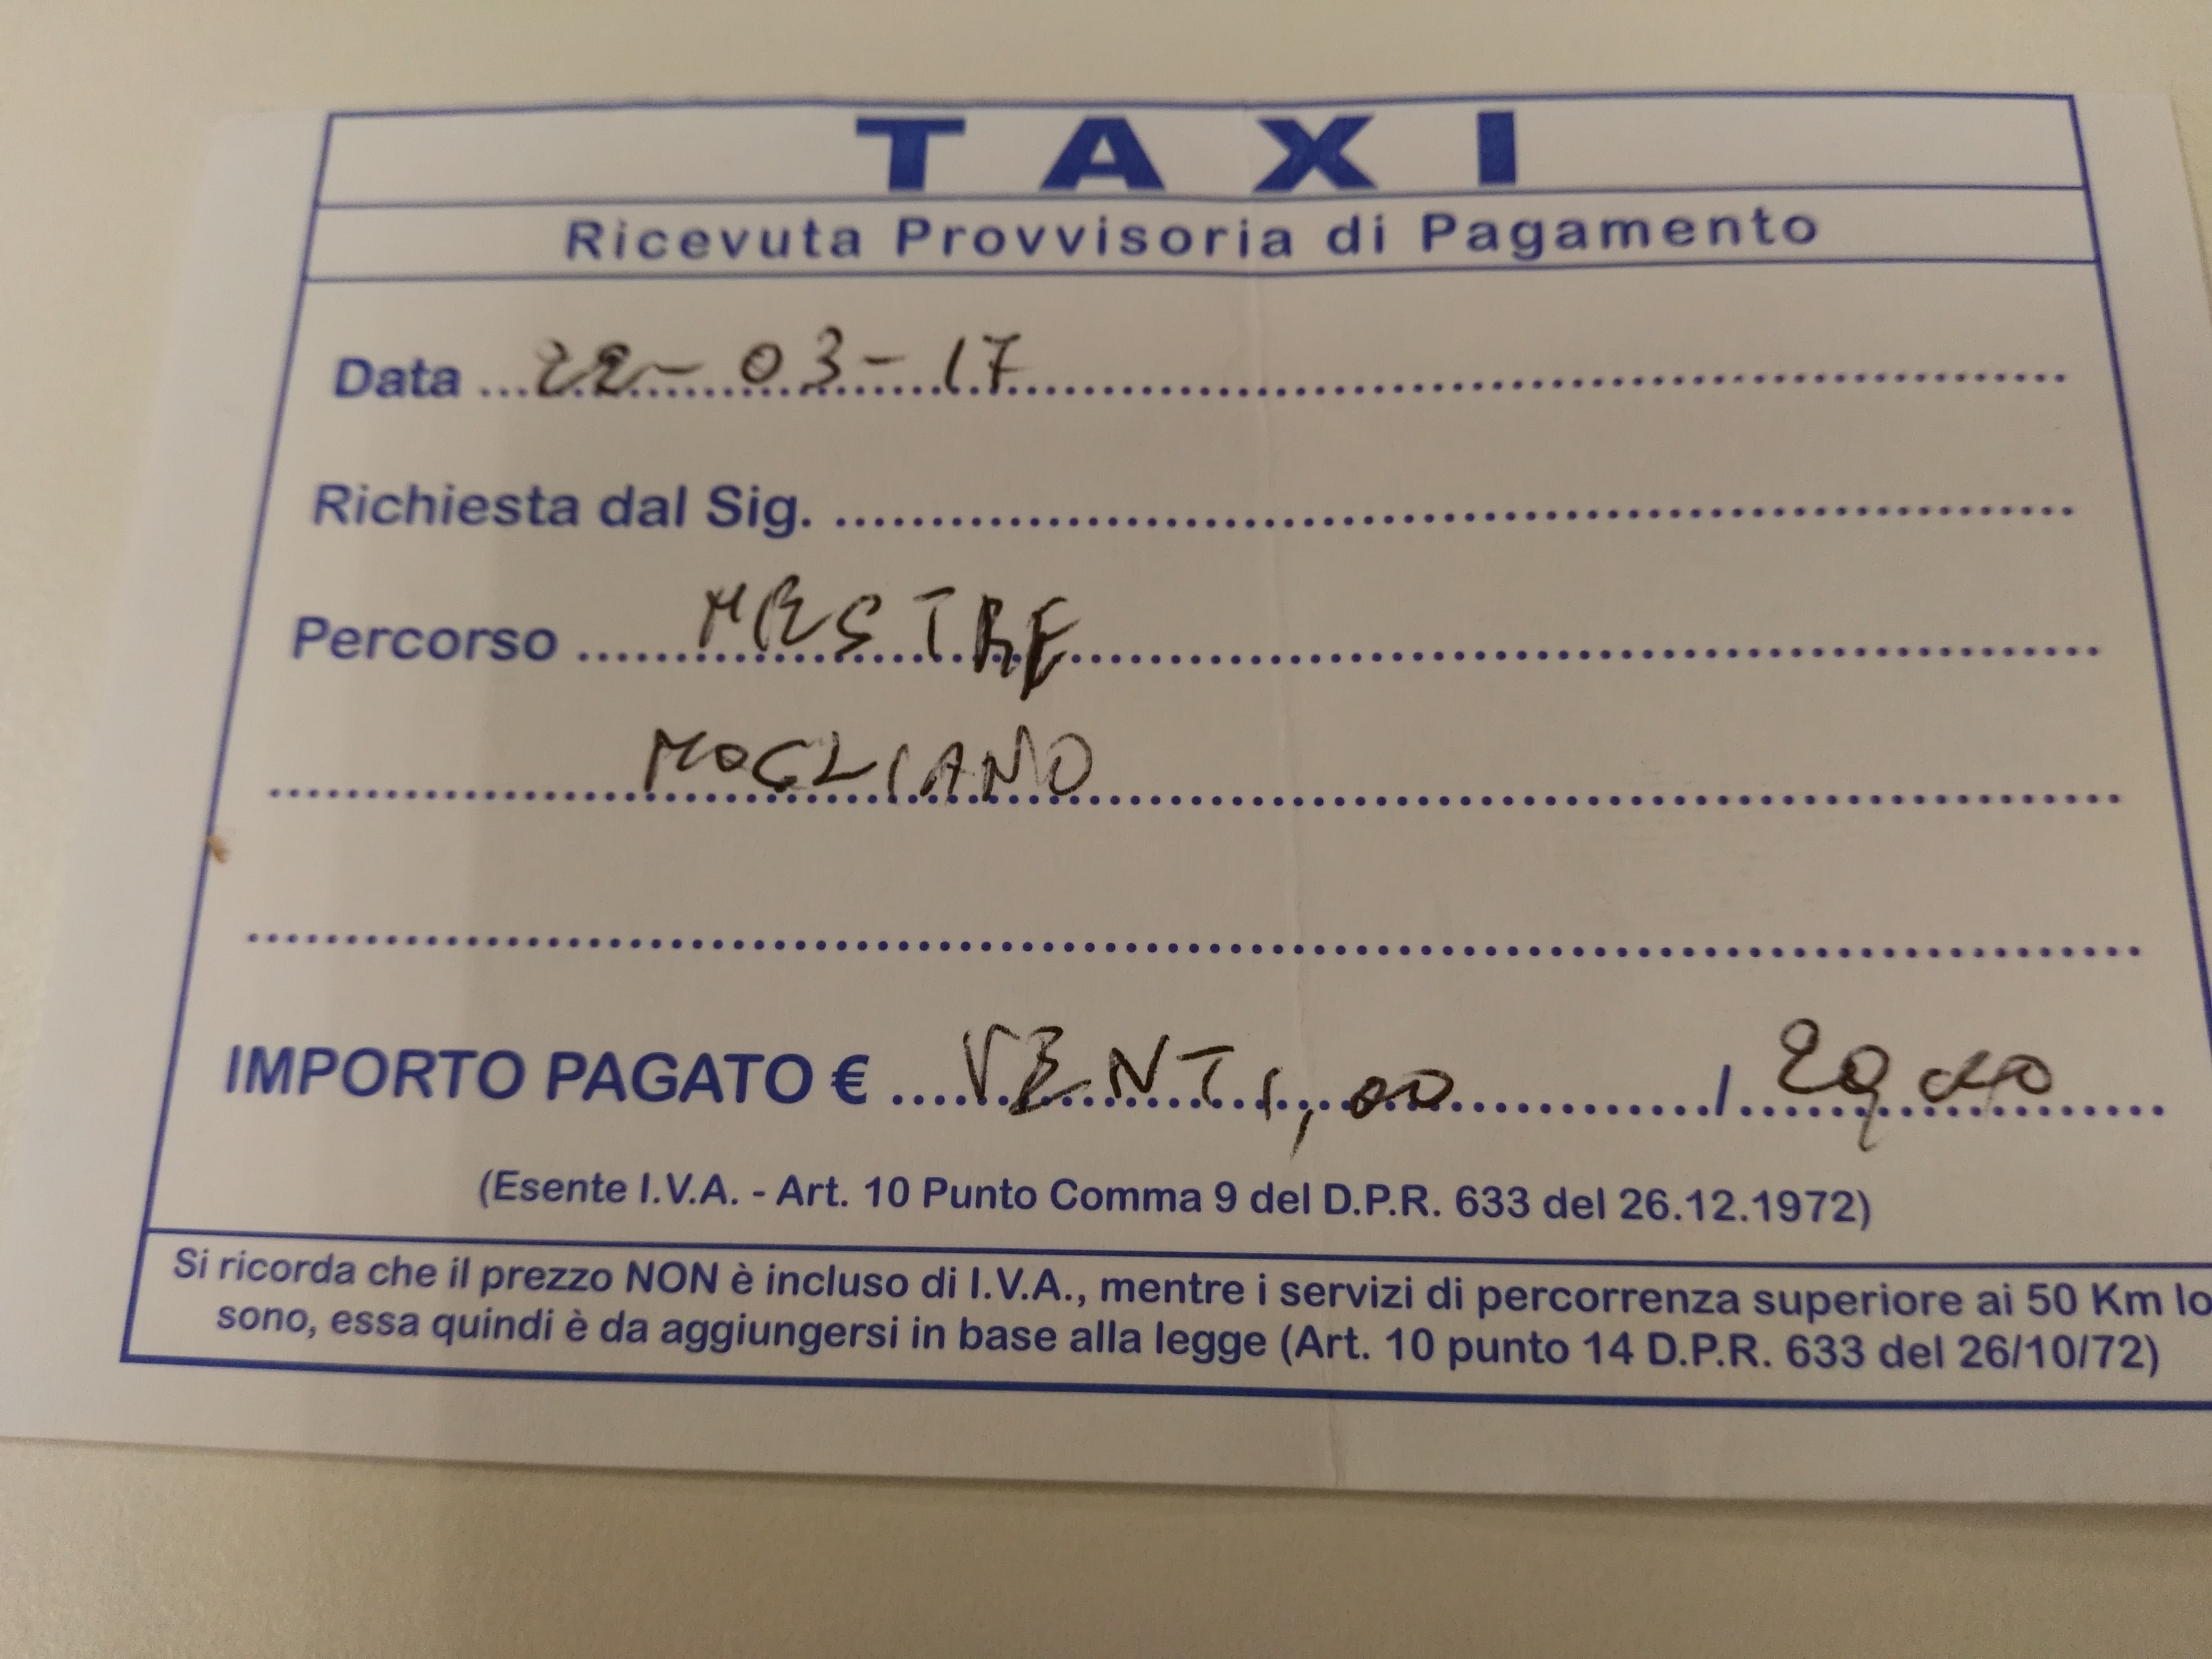 TAXI
Ricevuta Provvisoria di Pagamento
Data 22-03-17
Richiesta dal Sig.
Percorso MESTRE
MOGLIANO
IMPORTO PAGATO € VENTI,00 / 20,00
(Esente I.V.A. - Art. 10 Punto Comma 9 del D.P.R. 633 del 26.12.1972)
Si ricorda che il prezzo NON è incluso di I.V.A., mentre i servizi di percorrenza superiore ai 50 Km lo
sono, essa quindi è da aggiungersi in base alla legge (Art. 10 punto 14 D.P.R. 633 del 26/10/72)